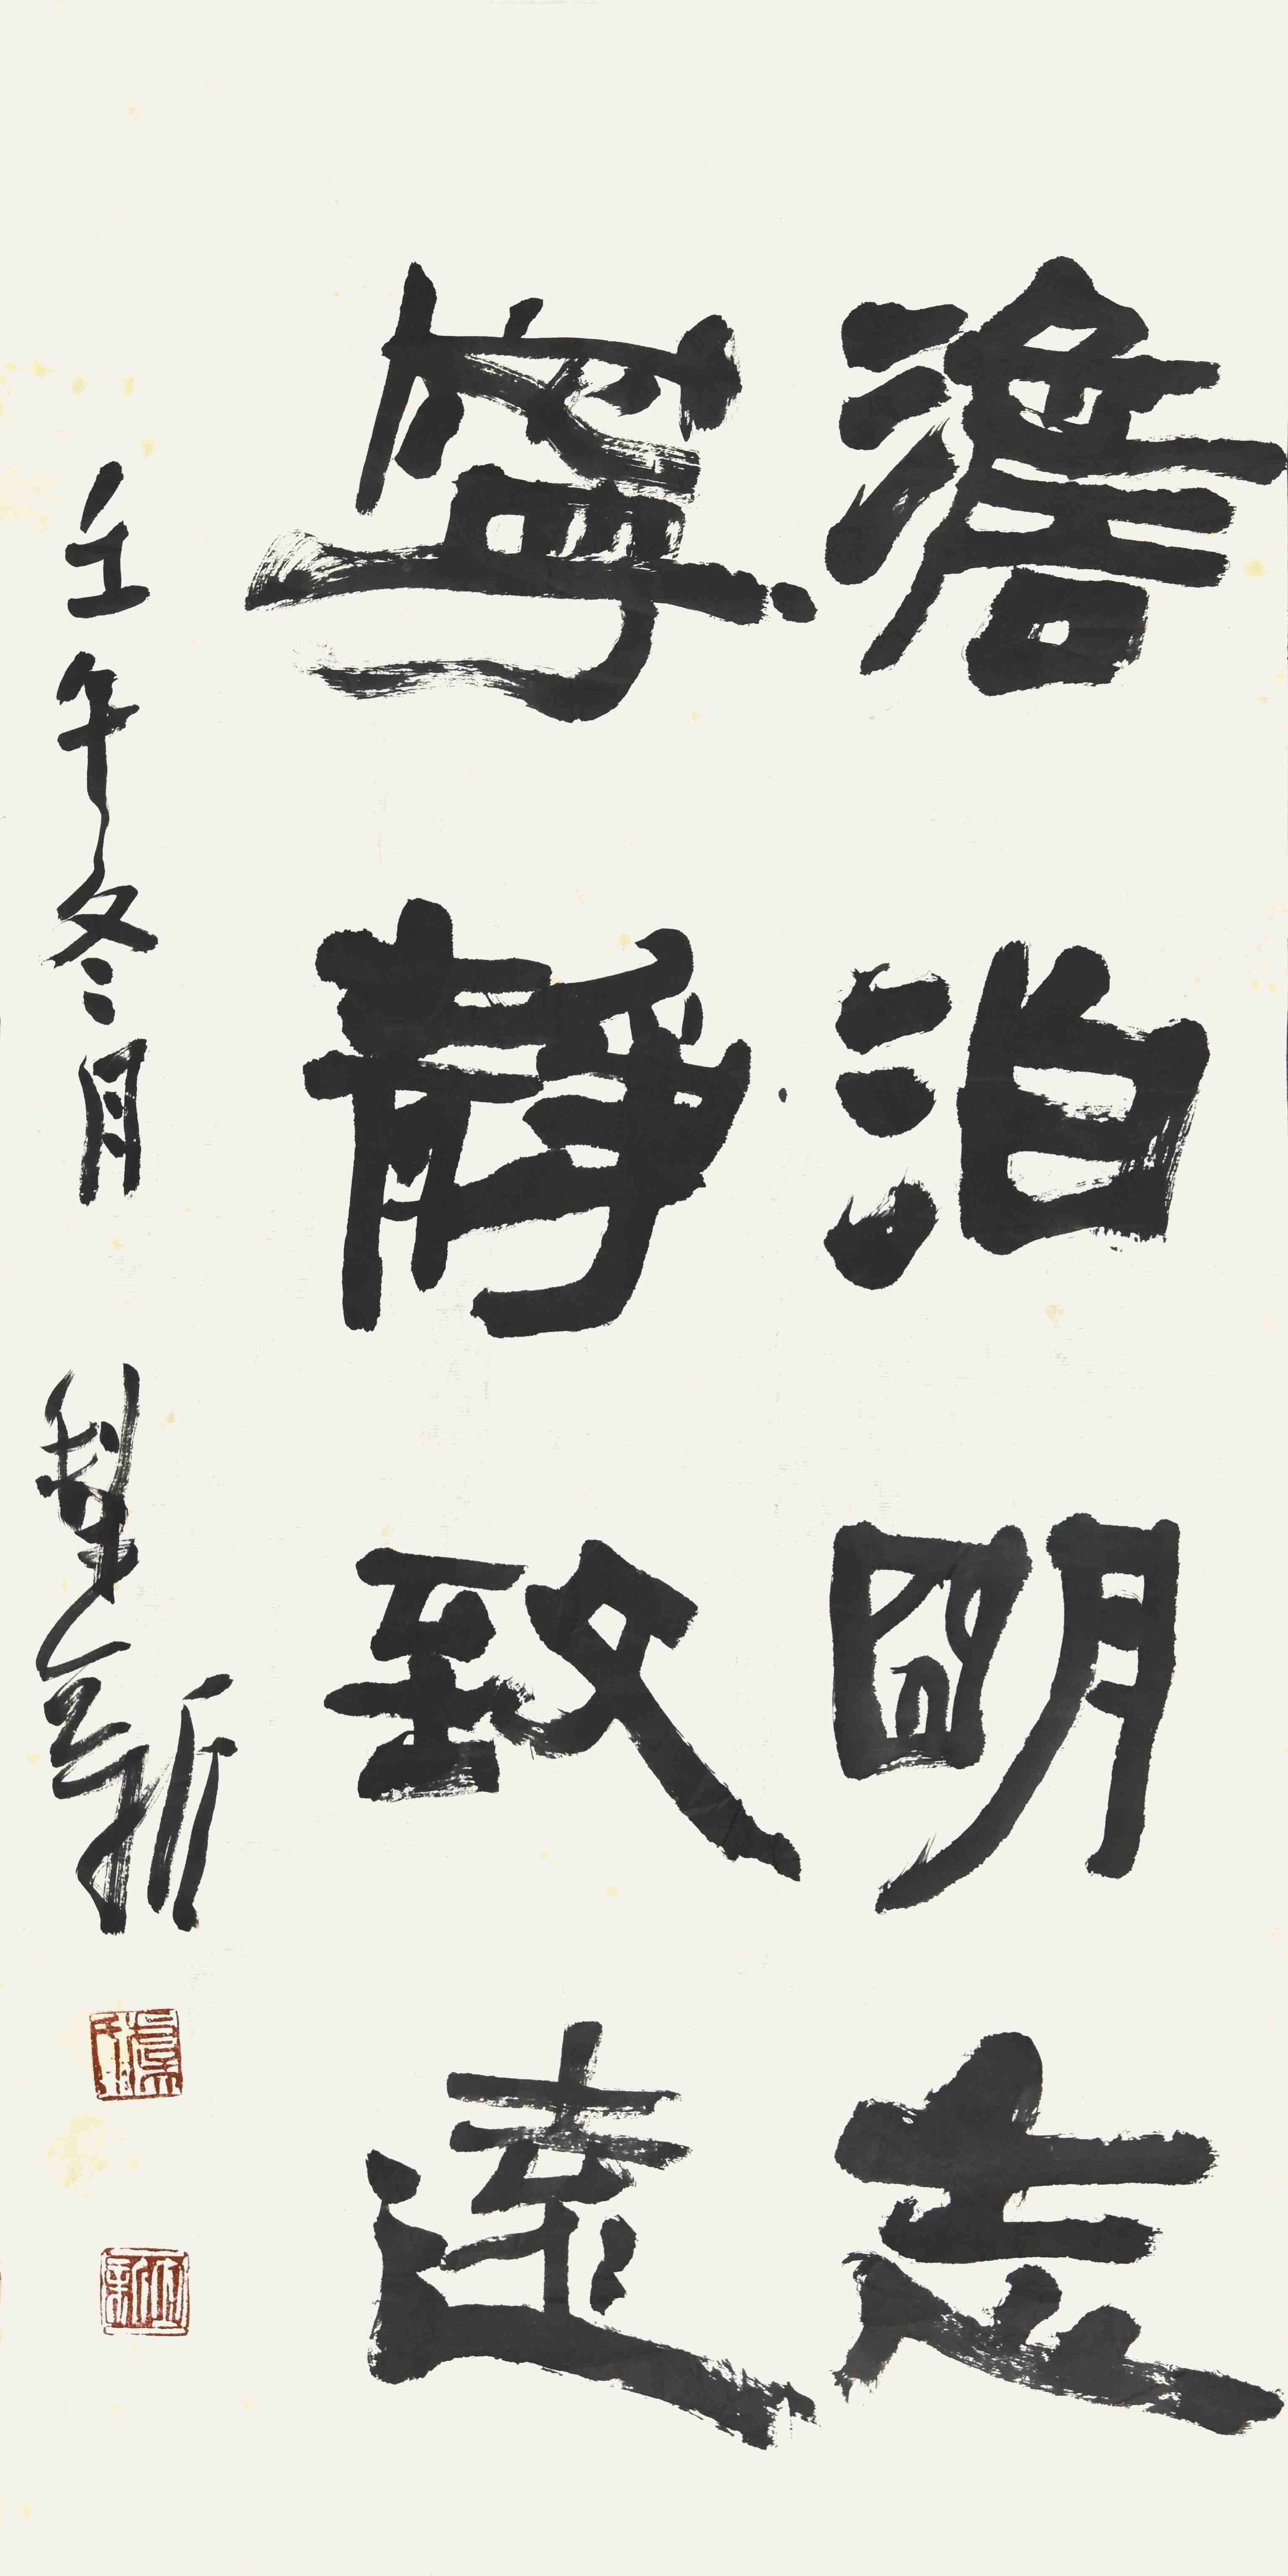 澹泊明志
寧靜致遠
壬午冬月 犁新